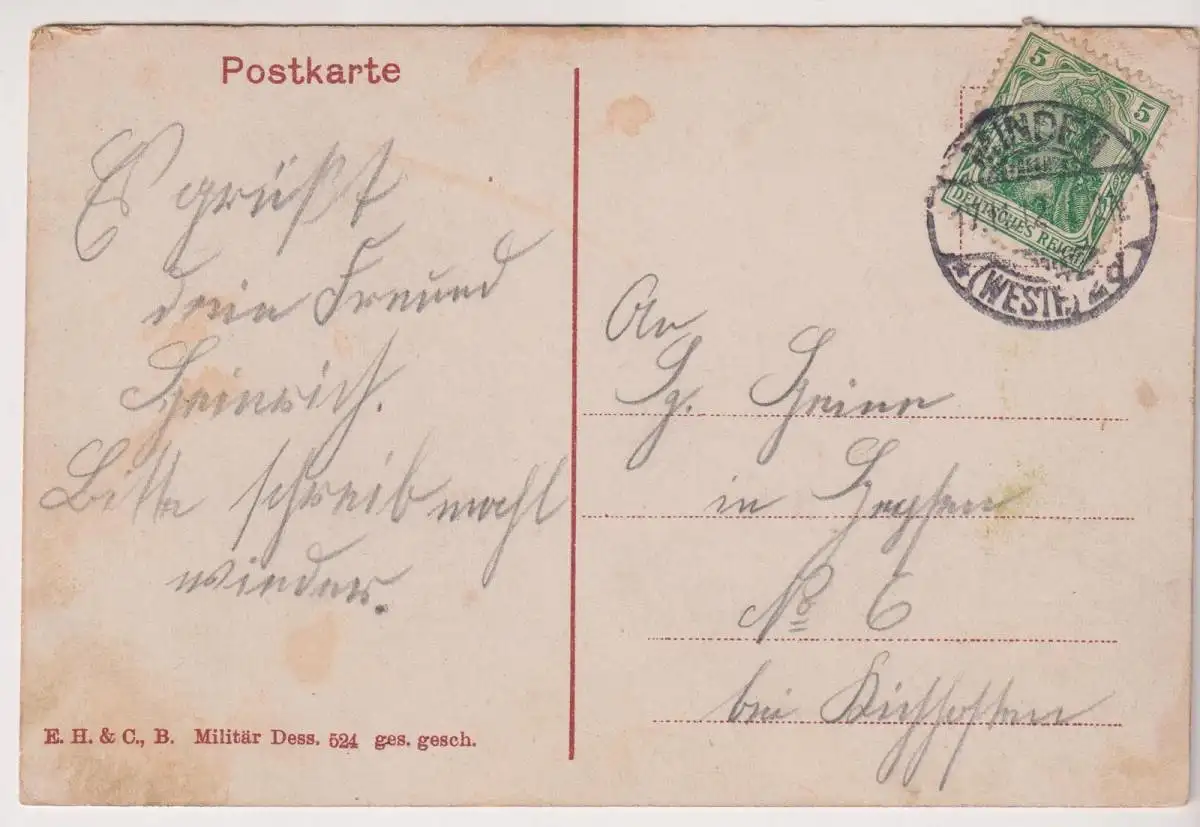 Postkarte
Es grüßt
dein Freund
Heinrich.
Bitte schreib mahl
wieder.
E. H. & C., B. Militär Dess. 524 ges. gesch.
5
5
DEUTSCHES REICH
MINDEN
(WESTF.)
An
H. Heine
in
№ 6
bei